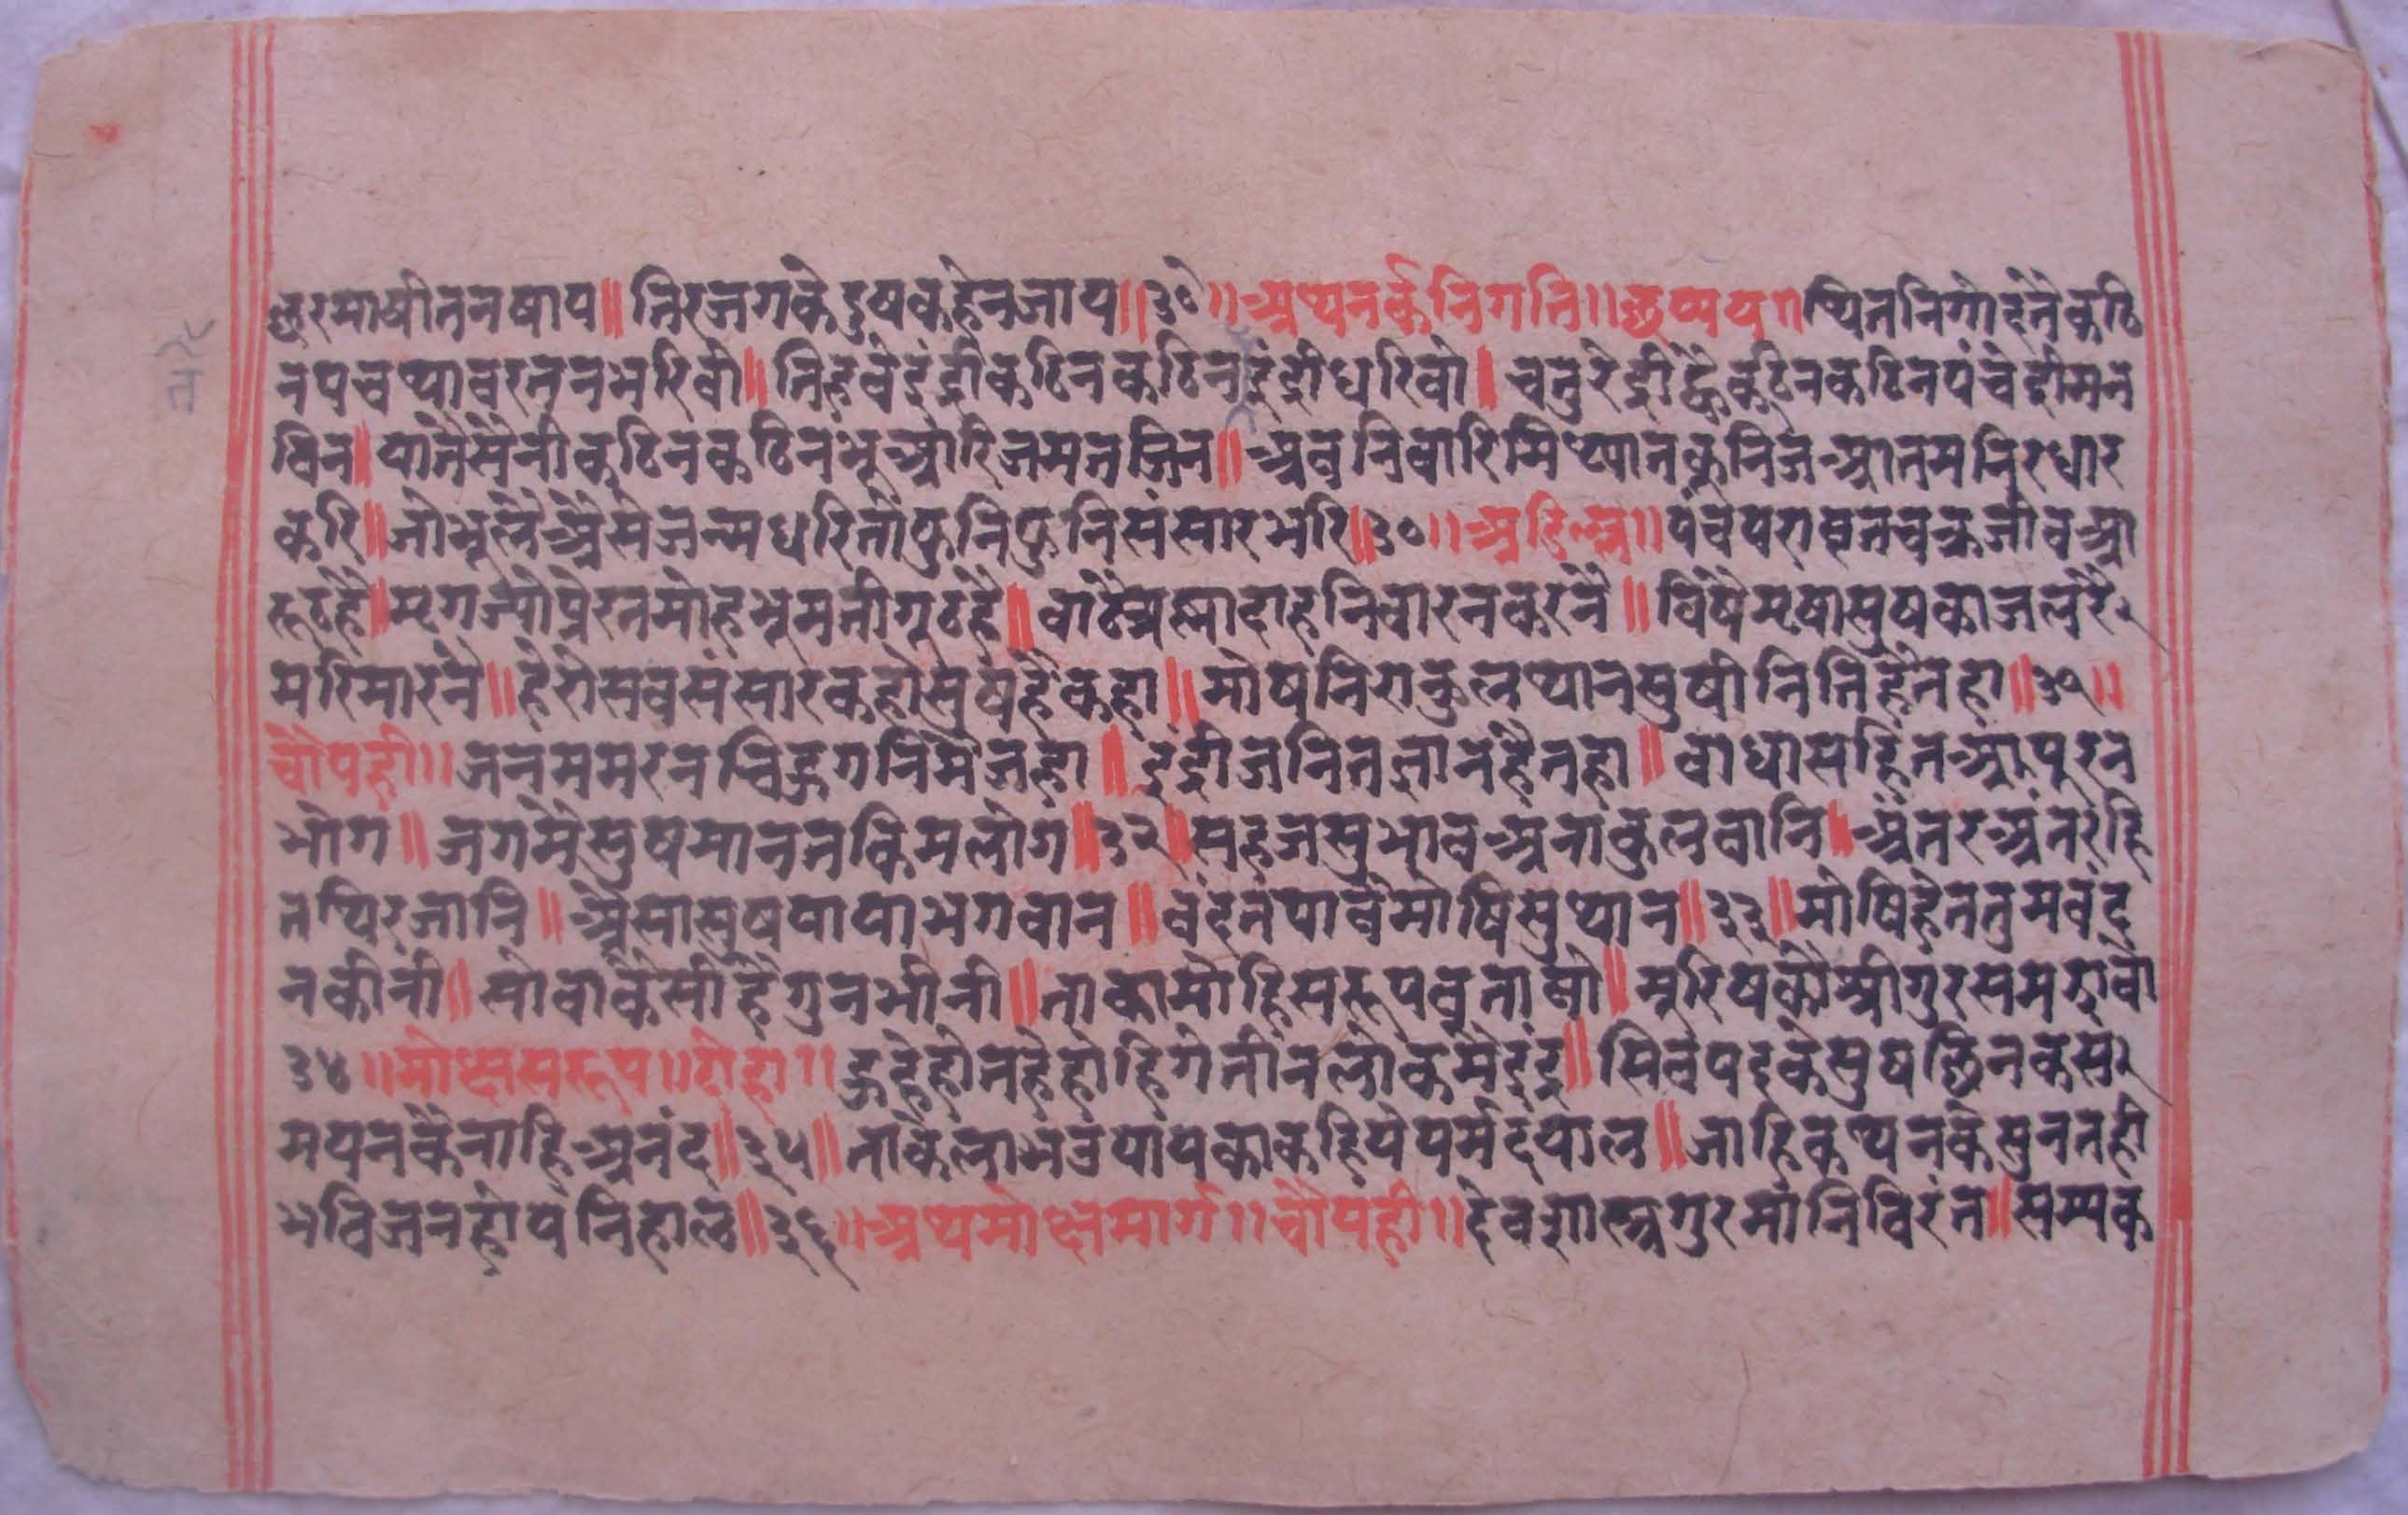 छुरसायीतनषाप॥तिरजगकेदुषकहेनजाय॥३०॥अथनर्कनिगति॥छप्पय॥थितनिगोदतैकठि
नपचथावरतनभरिवौ॥तिहवेइंद्रीकठिनकठिनइंद्रीधरिवो॥चतुरेंद्रीह्वैकठिनकठिनपंचेद्रीमन
विन॥यातैसैनीकठिनकठिनभूआरिजमतजिन॥अवनिवारिमिथ्यातकुनिजआतमनिरधार
करि॥जोभूलैअैसेजन्मधरितौफुनिफुनिसंसारभरि॥३०॥अडिल्ल॥पंचपरावतनचक्रजीवआ
रूढहै॥मृगज्योप्रेरतमोहभ्रमतीगूढहै॥वाढैत्रस्नादाहनिवारनकरनै॥विषैमृषासुषकाजलरै
मरिमारनै॥हेरोसवसंसारकहोसुषहैकहा॥मोषनिराकुलथानसुषीनितिहैतहा॥३१॥
चौपही॥जनममरनचिहुगतिमैजहा॥इंद्रीजनितज्ञानहैतहा॥वाधासहितआपुरन
भोग॥जगमैसुषमानतकिमलोग॥३२॥सहजसुभावअनाकुलवानि॥अंतरअंतरहि
तथिरजानि॥अैसासुषपायाभगवान॥वंदतपावैमोषिसुथान॥३३॥मोषिहेततुमवंद
नकीनी॥सोवाकैसीहैगुनभीनी॥ताकामोहिसरूपवताबो॥मूरिषकौश्रीगुरसमझावो
३४॥मोक्षसरूप॥दोहा॥हूहेहोतहैहोहिगेतीनलोकमैइंद्र॥सिवपदकेसुषछिनकस
मपनकैनाहिअनंद॥३५॥ताकेलाभउपायकाकहियेपर्मदयाल॥जाहिकथनकेसुनतही
भविजनहोयनिहाल॥३६॥अथमोक्षमार्ग॥चौपही॥देवशास्त्रगुरमानिविरंत॥सम्यक